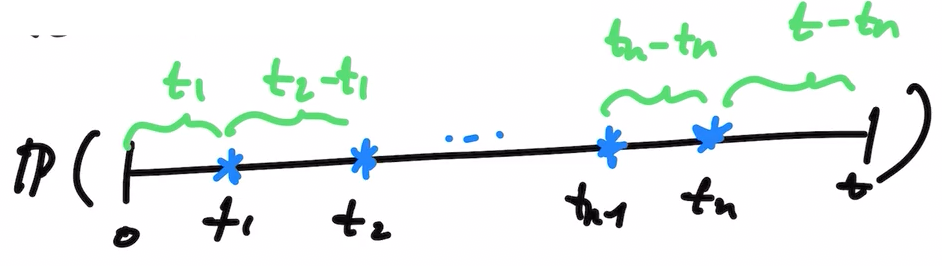 t₁ t₂-t₁ tₙ-tₙ t-tₙ
ℙ( ... )
0 t₁ t₂ tₙ₋₁ tₙ t